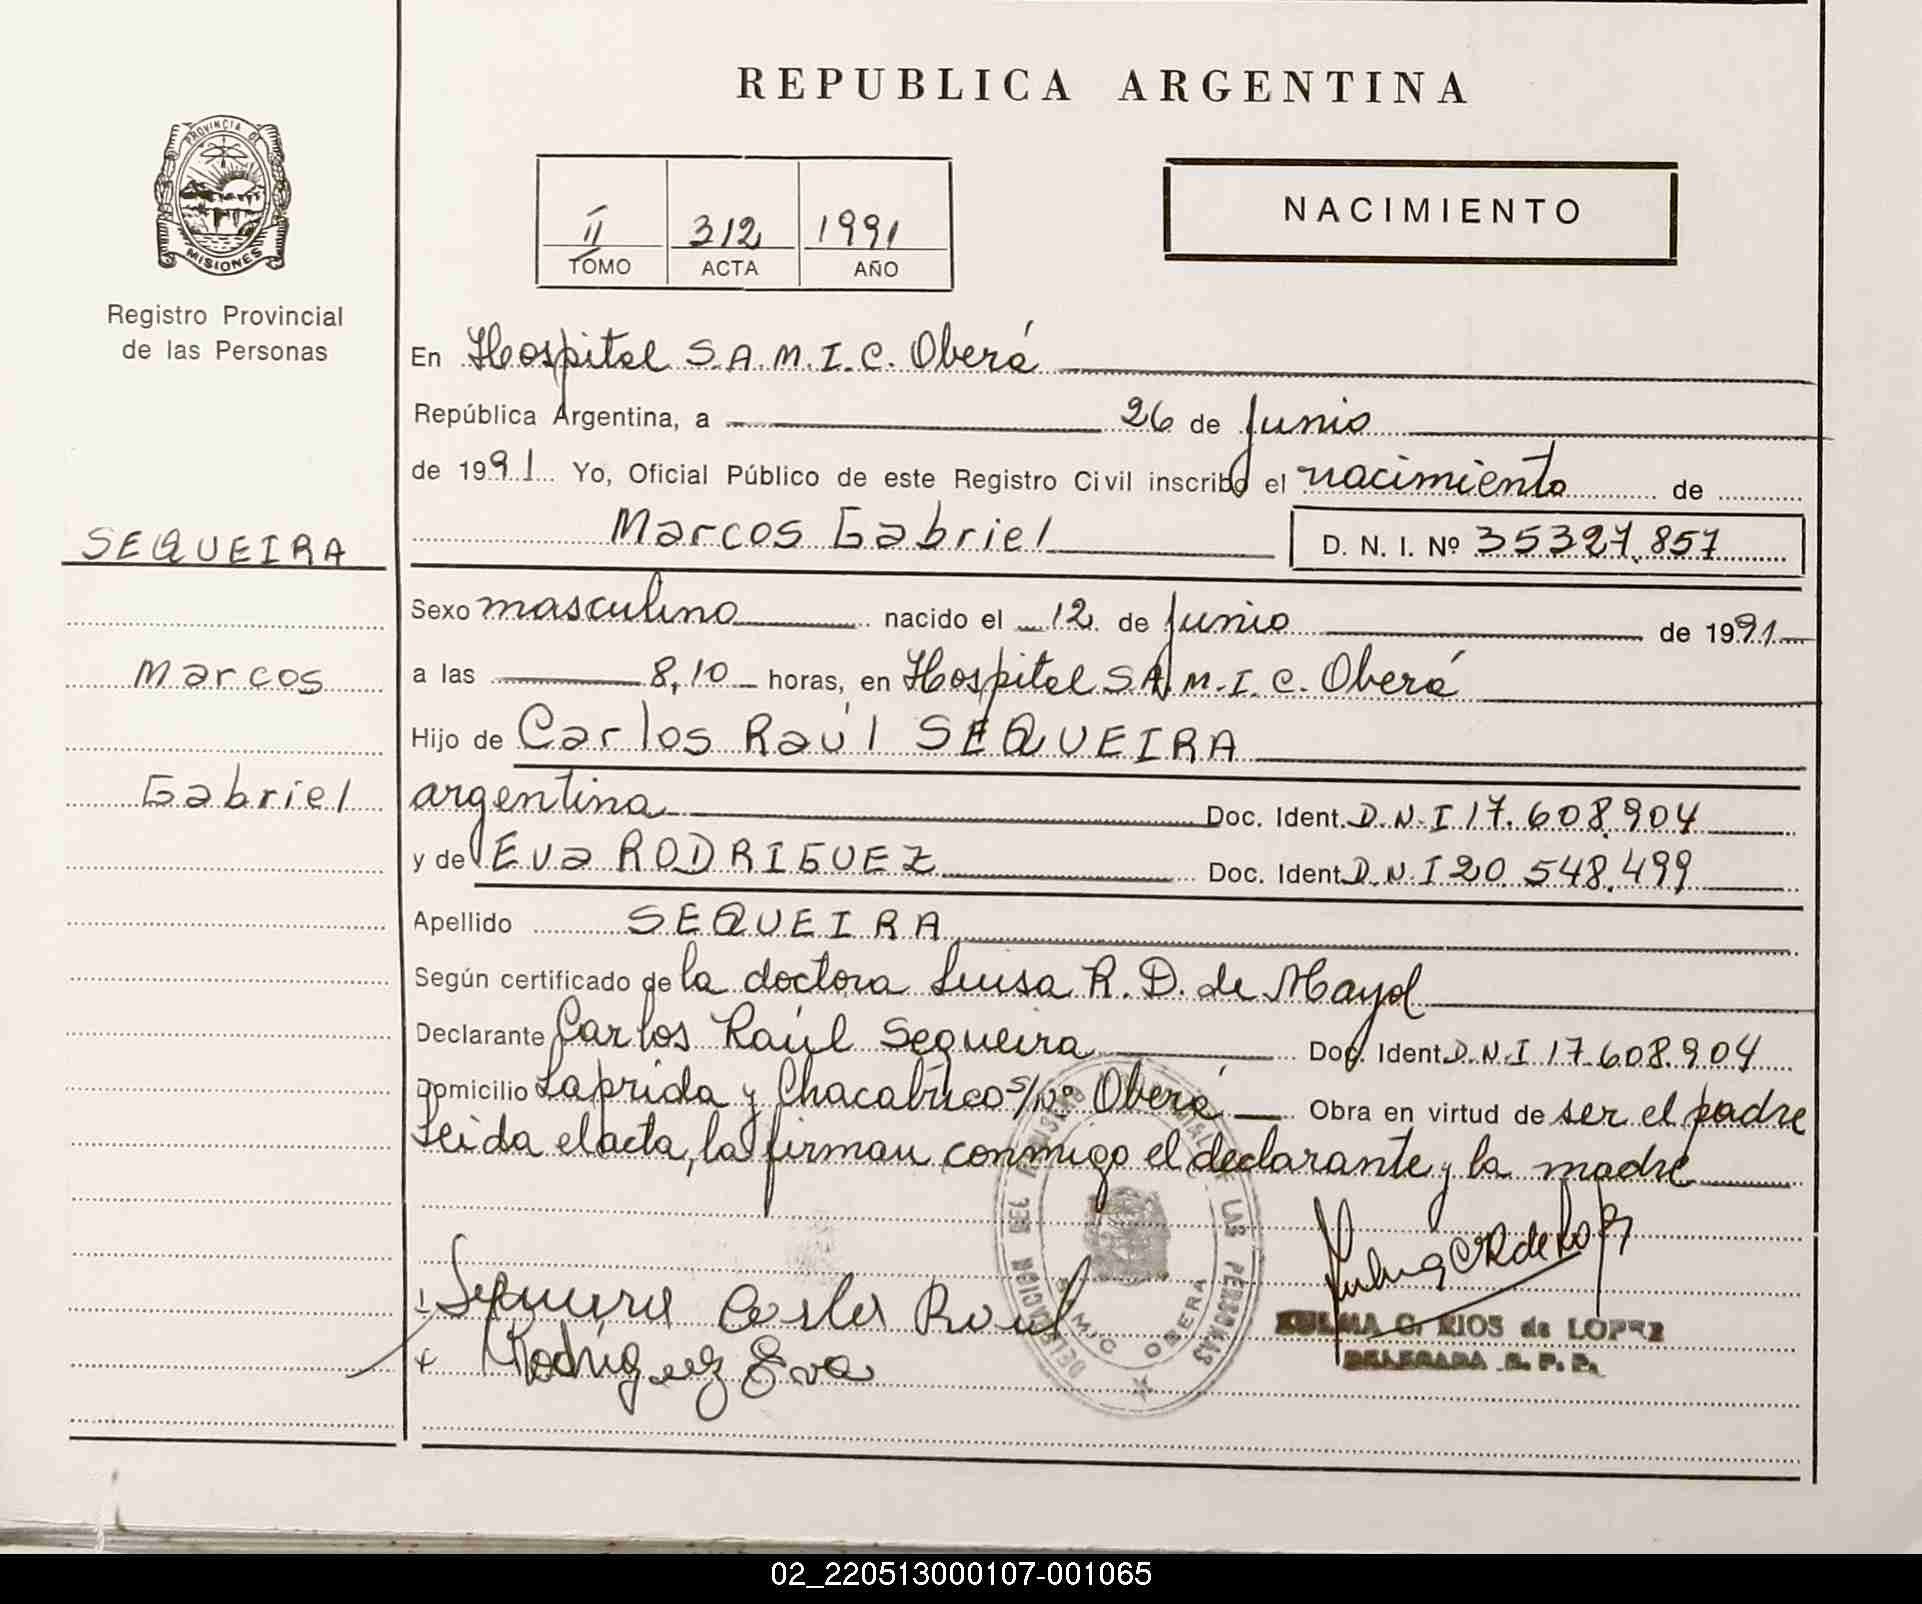 REPUBLICA ARGENTINA
PROVINCIA DE
MISIONES
Registro Provincial
de las Personas
II 312 1991
TOMO ACTA AÑO
NACIMIENTO
En Hospital S.A.M.I.C. Oberá
República Argentina, a 26 de Junio
de 1991 Yo, Oficial Público de este Registro Civil inscribo el nacimiento de
Marcos Gabriel D. N. I. Nº 35327.857
SEQUEIRA
Marcos
Gabriel
Sexo masculino nacido el 12 de Junio de 1991
a las 8,10 horas, en Hospital S.A.M.I.C. Oberá
Hijo de Carlos Raúl SEQUEIRA
argentina Doc. Ident. D.N.I 17.608.904
y de Eva RODRIGUEZ Doc. Ident. D.N.I 20.548.499
Apellido SEQUEIRA
Según certificado de la doctora Luisa R. D. de Mayol
Declarante Carlos Raúl Sequeira Doc. Ident. D.N.I 17.608.904
Domicilio Laprida y Chacabuco s/nº Oberá Obra en virtud de ser el padre
Leida el acta, la firman conmigo el declarante y la madre
Sequeira Carlos Raul
Rodriguez Eva
DELEGACION DEL REGISTRO PROVINCIAL DE LAS PERSONAS
OBERA
ZULMA C. RIOS de LOPEZ
DELEGADA R. P. P.
02_220513000107-001065